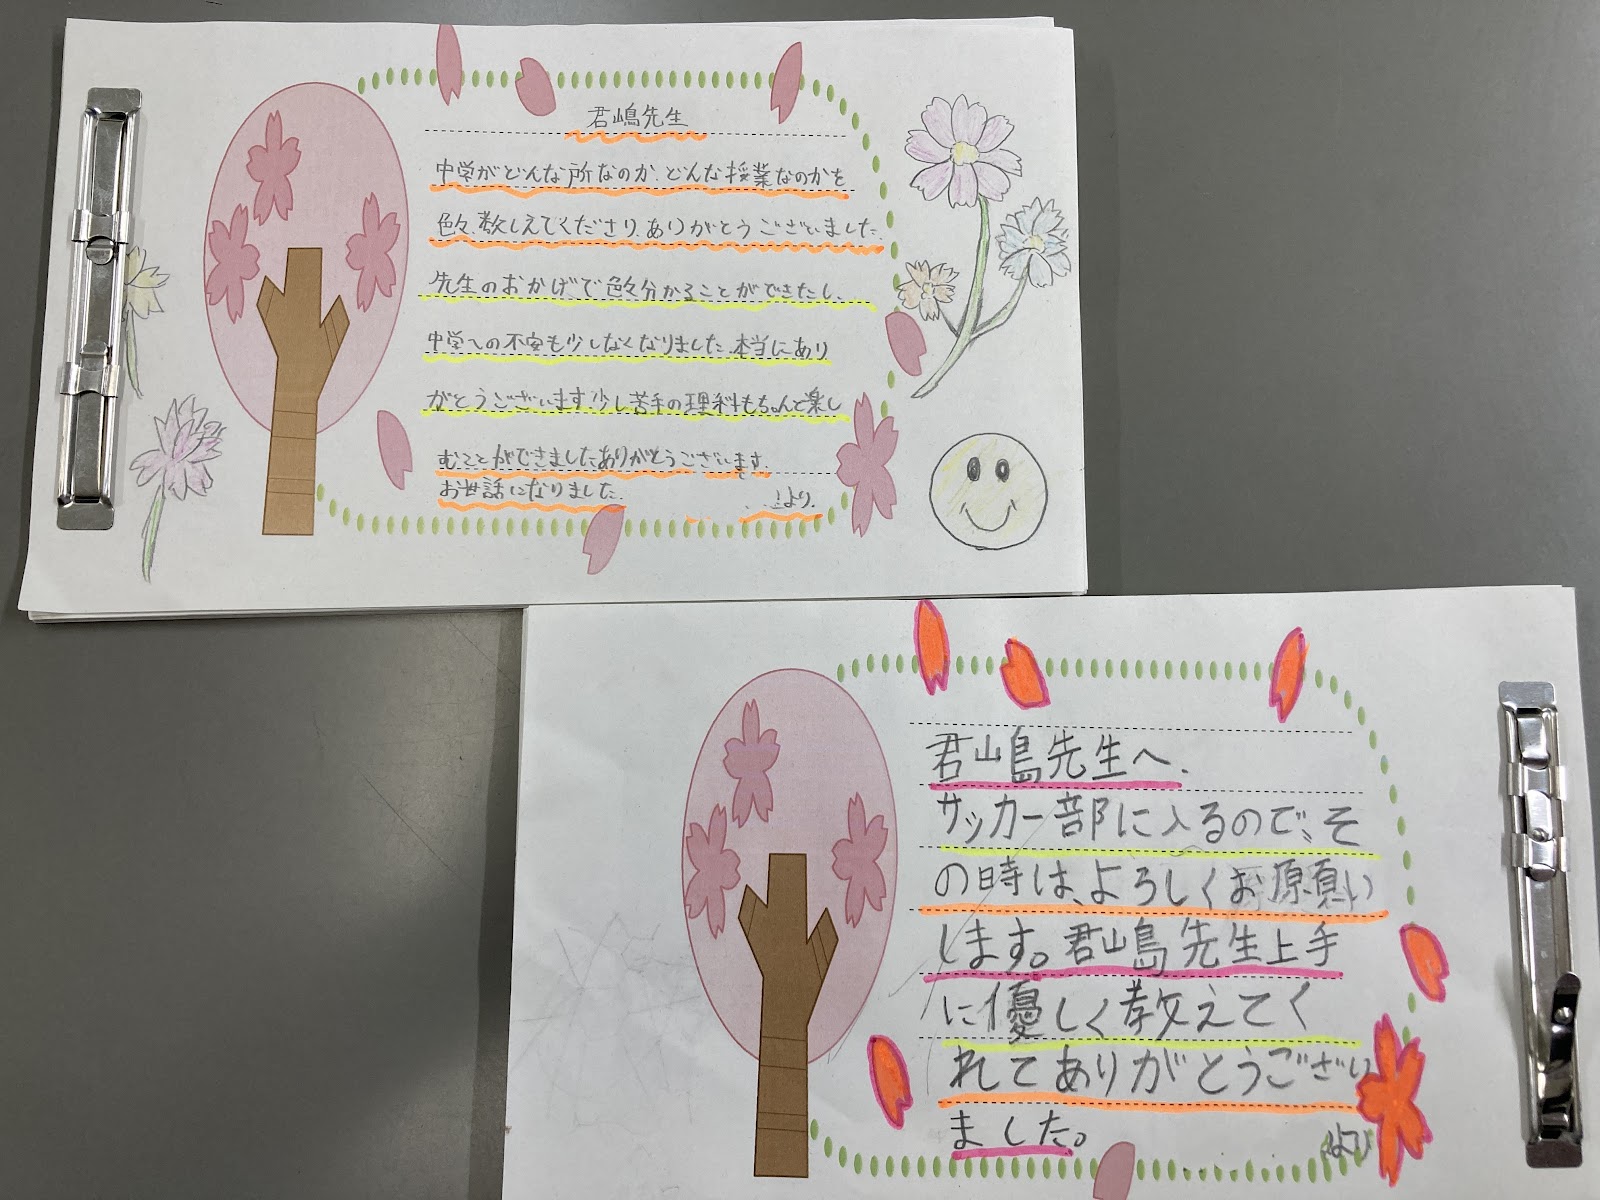 君嶋先生
中学がどんな所なのか、どんな授業なのかを
色々、教しえてくださり、ありがとうございました。
先生のおかげで色々分かることができたし、
中学への不安も少しなくなりました。本当にあり
がとうございます。少し苦手の理科もちゃんと楽し
むことができましたありがとうございます。
お世話になりました。
より。
君嶋先生へ、
サッカー部に入るので、そ
の時は、よろしくお願い
します。君嶋先生上手
に優しく教えてく
れてありがとうござい
ました。